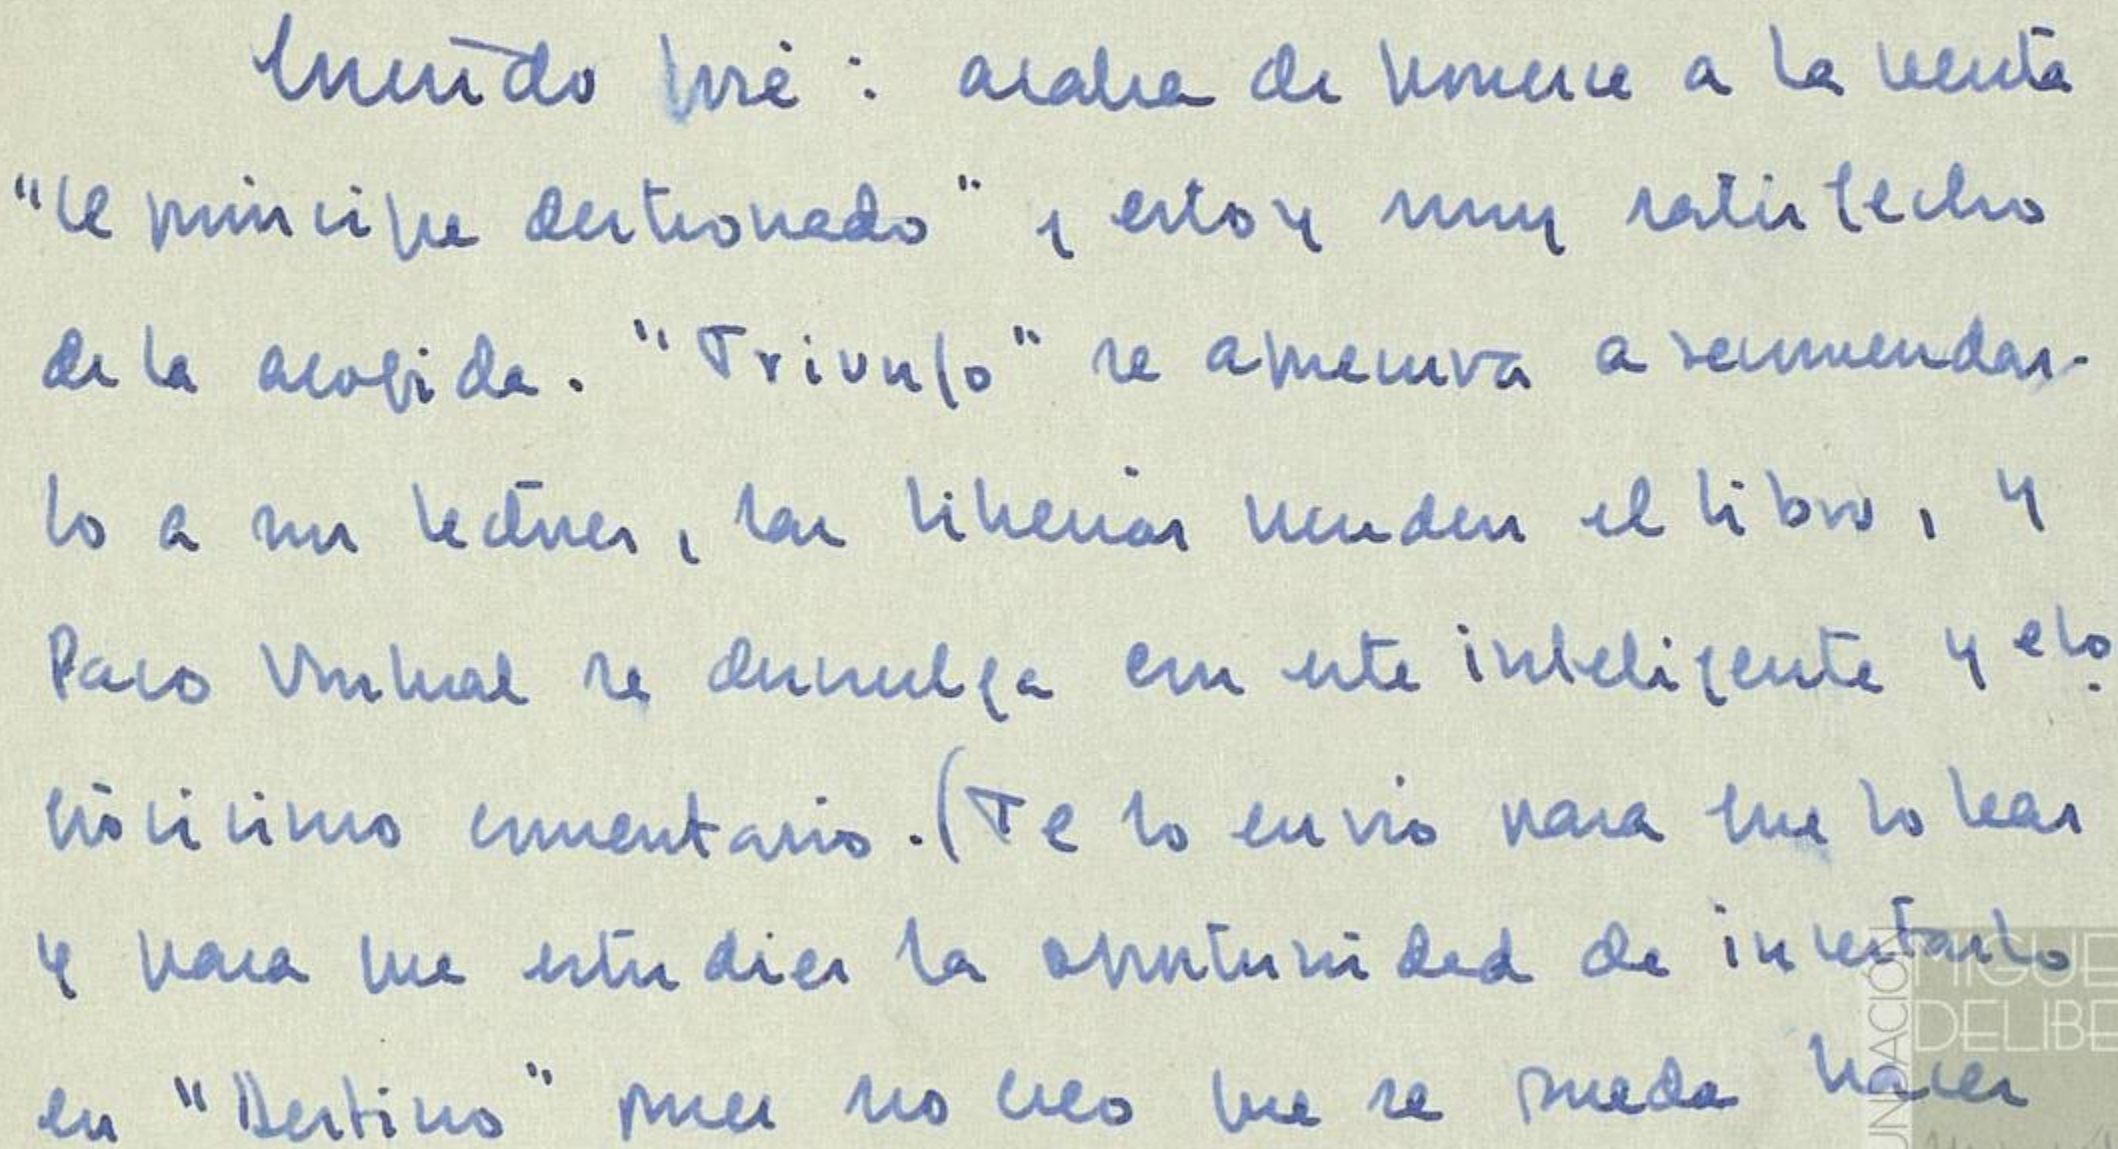 Querido José: acaba de ponerse a la venta
"El príncipe destronado" y estoy muy satisfecho
de la acogida. "Triunfo" se apresura a recomendar-
lo a sus lectores, las librerías venden el libro, y
Paco Umbral se descuelga con este inteligente y elo-
giosísimo comentario. (Te lo envío para que lo leas
y para que estudies la oportunidad de insertarlo
en "Destino" pues no creo que se pueda hacer
FUNDACIÓN
MIGUEL
DELIBE